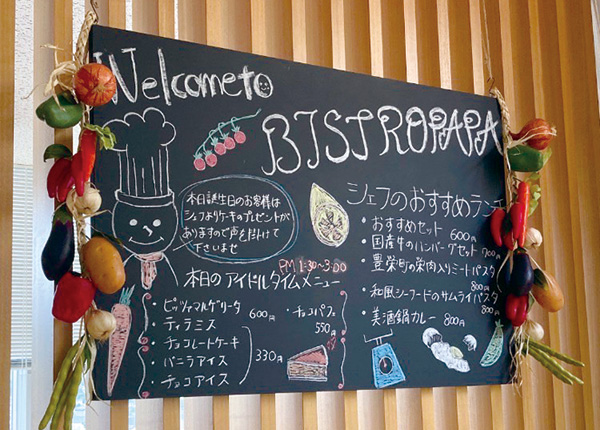 Welcome to
BISTROPAPA
本日誕生日のお客様は
シェフよりケーキのプレゼントが
ありますので声を掛けて
下さいませ
PM 1:30~3:00
本日のアイドルタイムメニュー
・ピッツァマルゲリータ 600円
・ティラミス
・チョコレートケーキ
・バニラアイス
・チョコアイス
330円
・チョコパフェ
550円
シェフのおすすめランチ
・おすすめセット 600円
・国産牛のハンバーグセット 900円
・豊栄町の栄肉入りミートパスタ
800円
・和風シーフードのサムライパスタ
800円
・美酒鍋カレー 800円